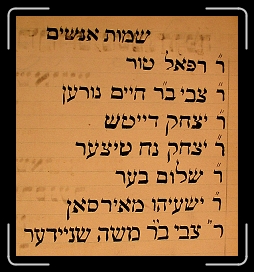 שמות אנשים
ר׳ רפאל טור
ר׳ צבי ב״ר חיים נורען
ר׳ יצחק דייטש
ר׳ יצחק נח טיצער
ר׳ שלום בער
ר׳ ישעיהו מאירסאן
ר׳ צבי ב״ר משה שניידער